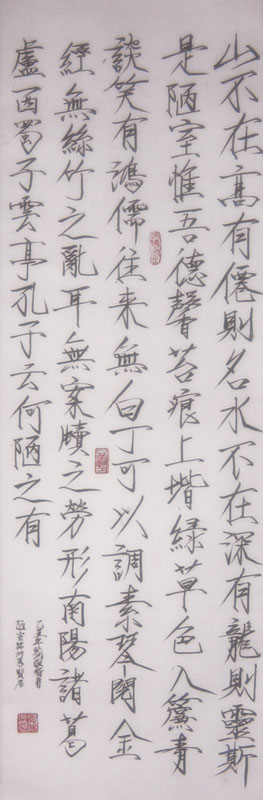 山不在高有僊則名水不在深有龍則靈斯
是陋室惟吾德馨苔痕上堦緑草色入簾青
談笑有鴻儒往来無白丁可以調素琴閱金
經無絲竹之亂耳無案牘之勞形南陽諸葛
廬西蜀子雲亭孔子云何陋之有